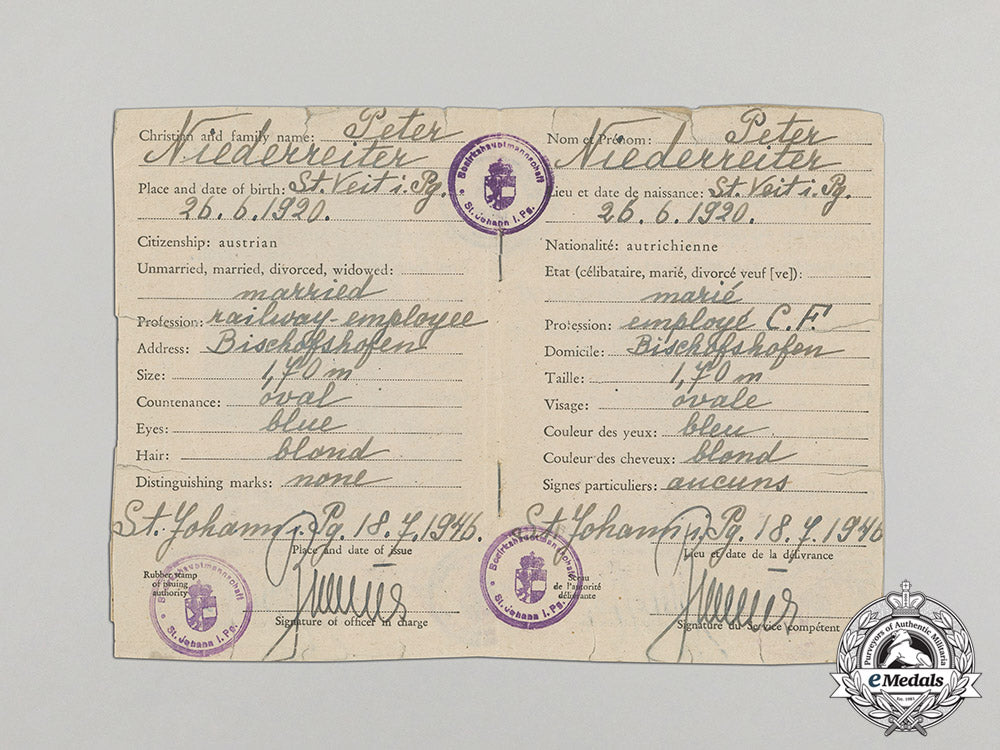 Christian and family name: Peter
Niederreiter
Place and date of birth: St. Veit i. Pg.
26. 6. 1920.
Citizenship: austrian
Unmarried, married, divorced, widowed:
married
Profession: railway-employee
Address: Bischofshofen
Size: 1,70 m
Countenance: oval
Eyes: blue
Hair: blond
Distinguishing marks: none
St. Johann i. Pg. 18. 7. 1946.
Place and date of issue
Rubber stamp
of issuing
authority
Signature of officer in charge
Bezirkshauptmannschaft
St. Johann i. Pg.
Bezirkshauptmannschaft
St. Johann i. Pg.
Nom et Prénom: Peter
Niederreiter
Lieu et date de naissance: St. Veit i. Pg.
26. 6. 1920.
Nationalité: autrichienne
Etat (célibataire, marié, divorcé veuf [ve]):
marié
Profession: employé C. F.
Domicile: Bischofshofen
Taille: 1,70 m
Visage: ovale
Couleur des yeux: bleu
Couleur des cheveux: blond
Signes particuliers: aucuns
St. Johann i. Pg. 18. 7. 1946
Lieu et date de la délivrance
Sceau
de l'autorité
délivrante
Signature du Service compétent
Bezirkshauptmannschaft
St. Johann i. Pg.
Purveyors of Authentic Militaria
eMedals
Est. 1981